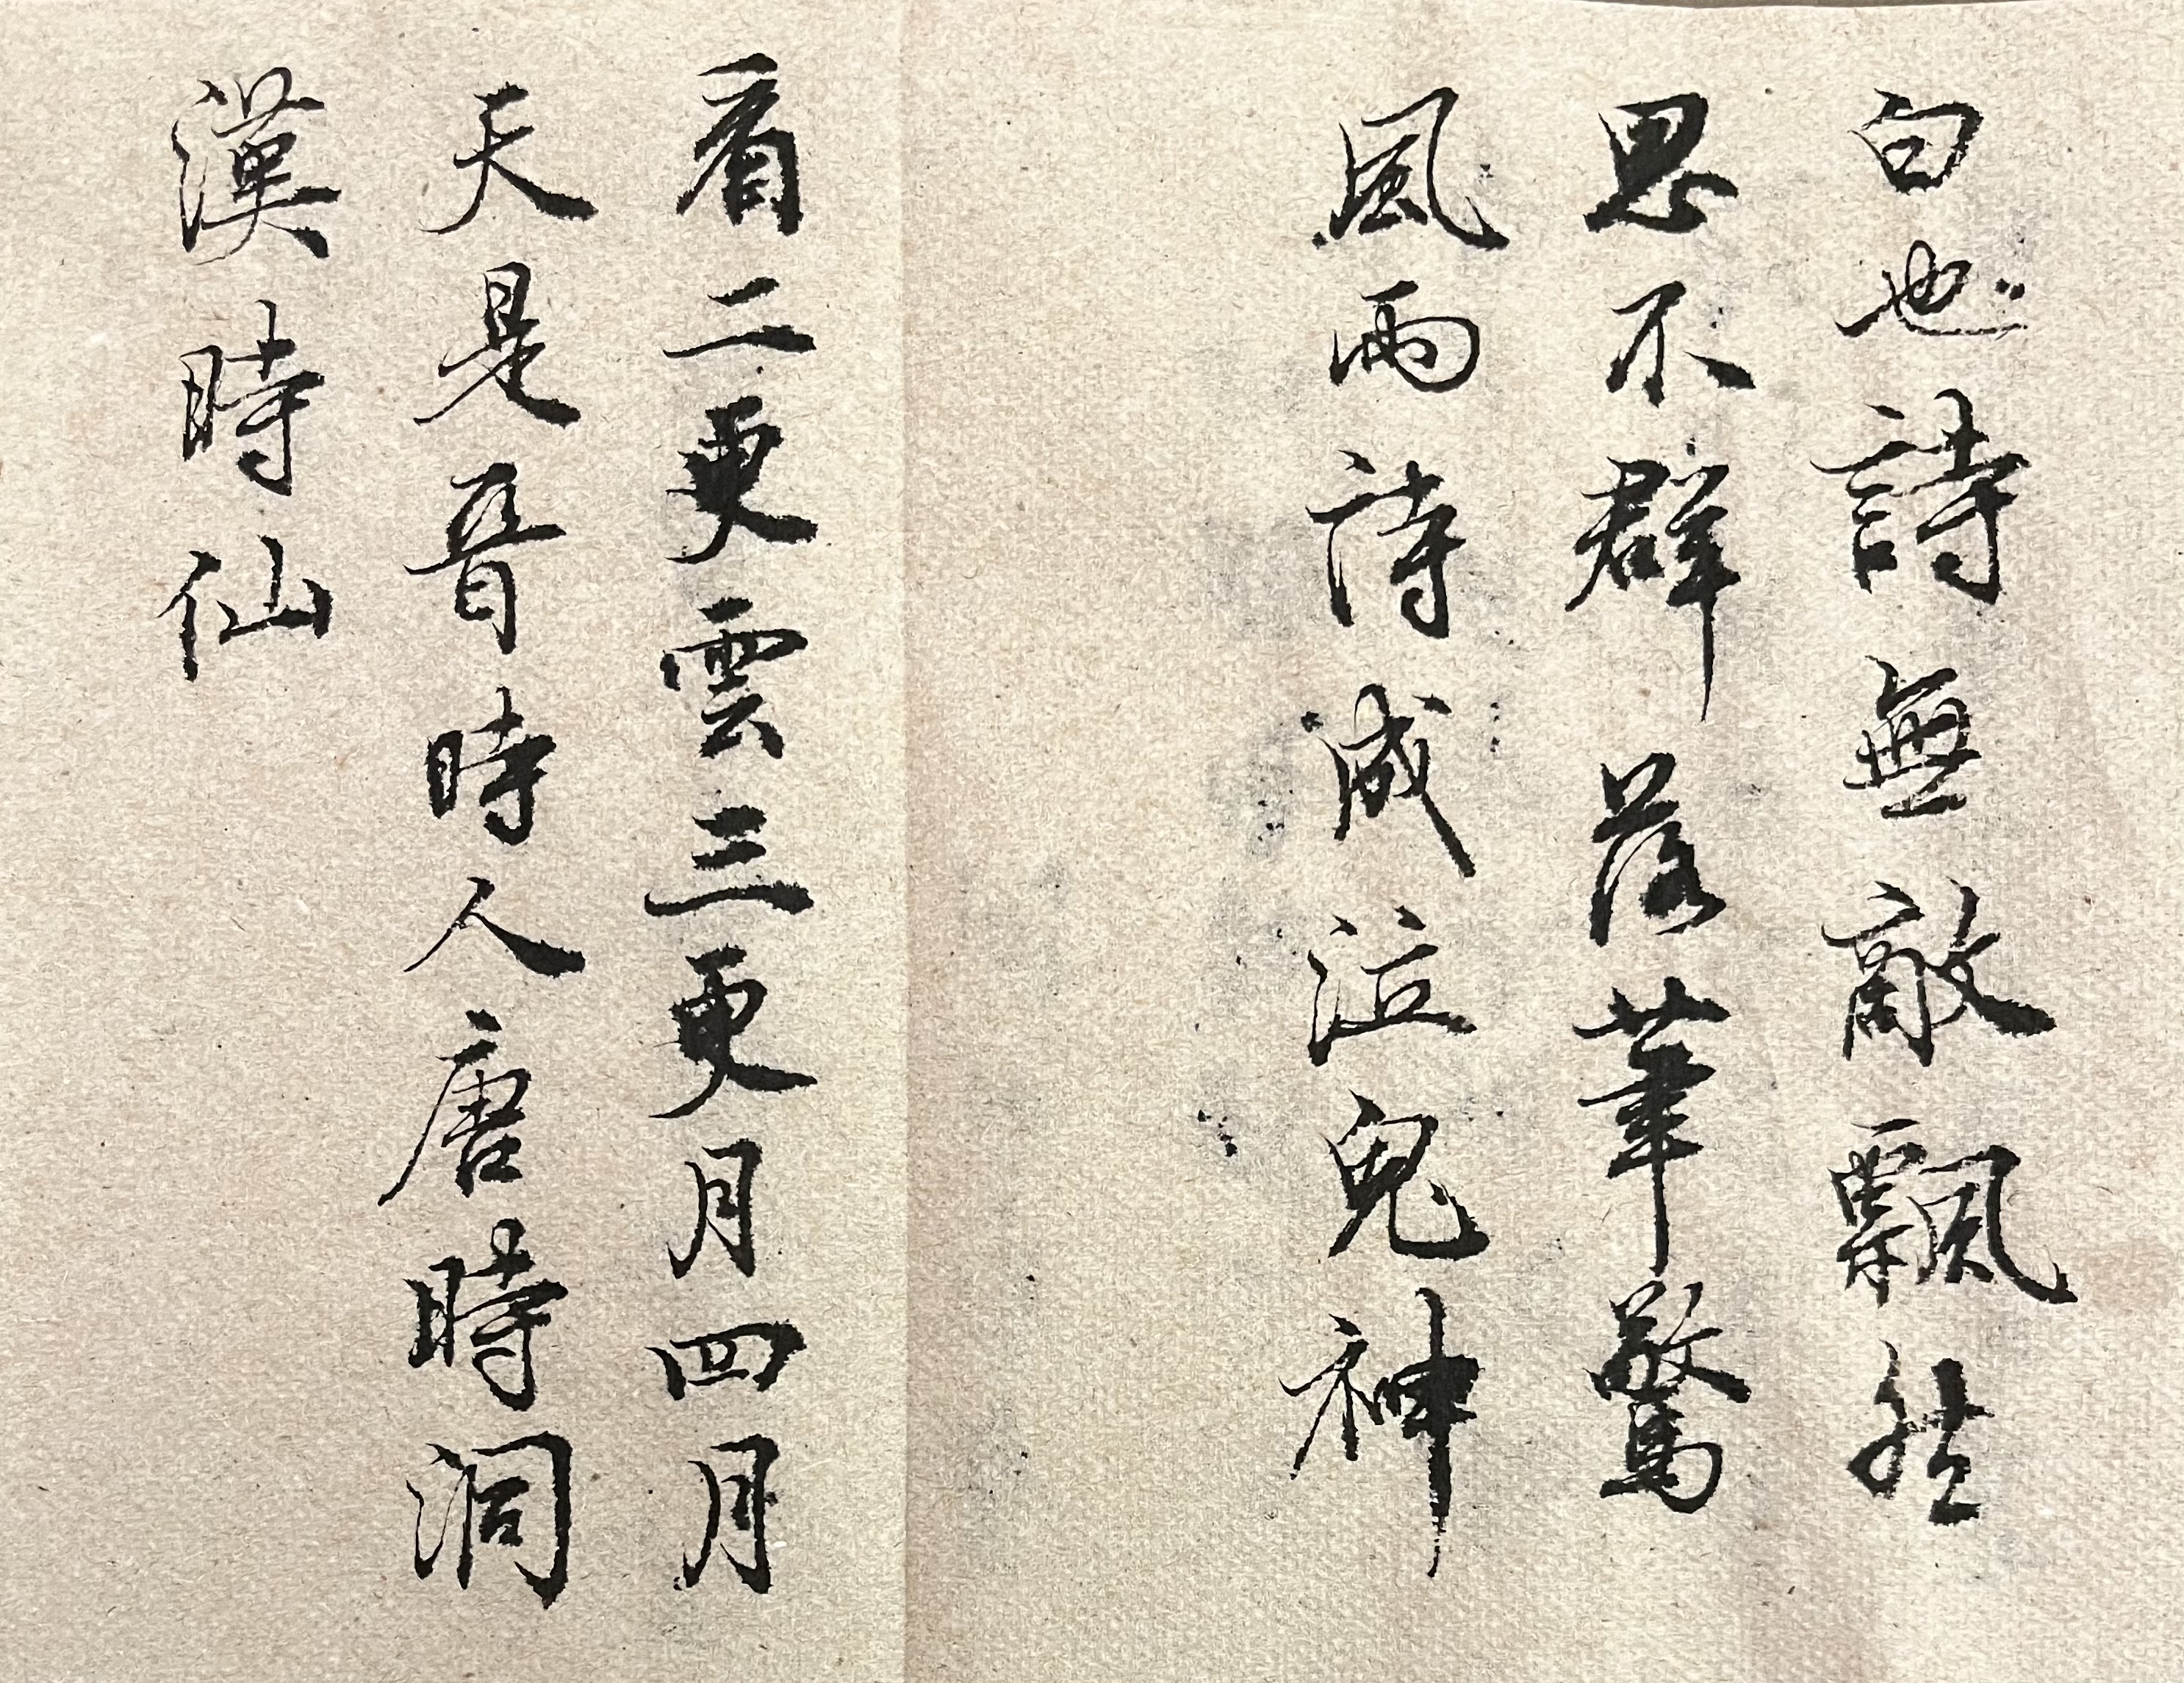 白也詩無敵飄然
思不群落筆驚
風雨詩成泣鬼神
看二更雲三更月四月
天是晉時人唐時洞
漢時仙